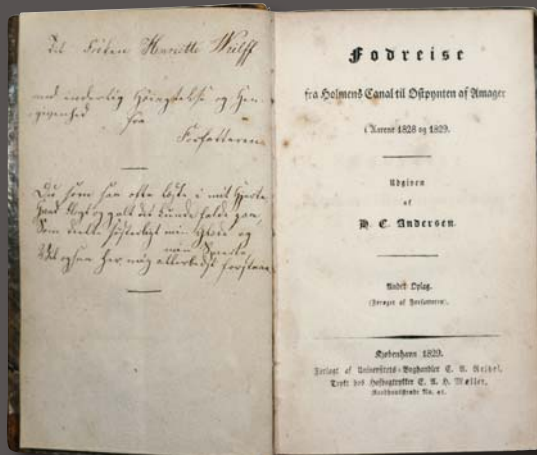 Til Frøken Henriette Wulff
med inderlig Høiagtelse og Hen-
givenhed fra
Forfatteren
Du som saa ofte læste i mit Hjerte,
Hvad klogt og galt det kunde falde paa,
Som deelte søsterligt min Glæde og
min Smerte,
Vil ogsaa her mig allerbedst forstaae
Fodreise
fra Holmens Canal til Østpynten af Amager
i Aarene 1828 og 1829.
Udgiven
af
H. C. Andersen.
Andet Oplag.
(Forøget af Forfatteren).
Kjøbenhavn 1829.
Forlagt af Universitets-Boghandler C. A. Reitzel.
Trykt hos Hofbogtrykker C. A. H. Møller,
No. 41.